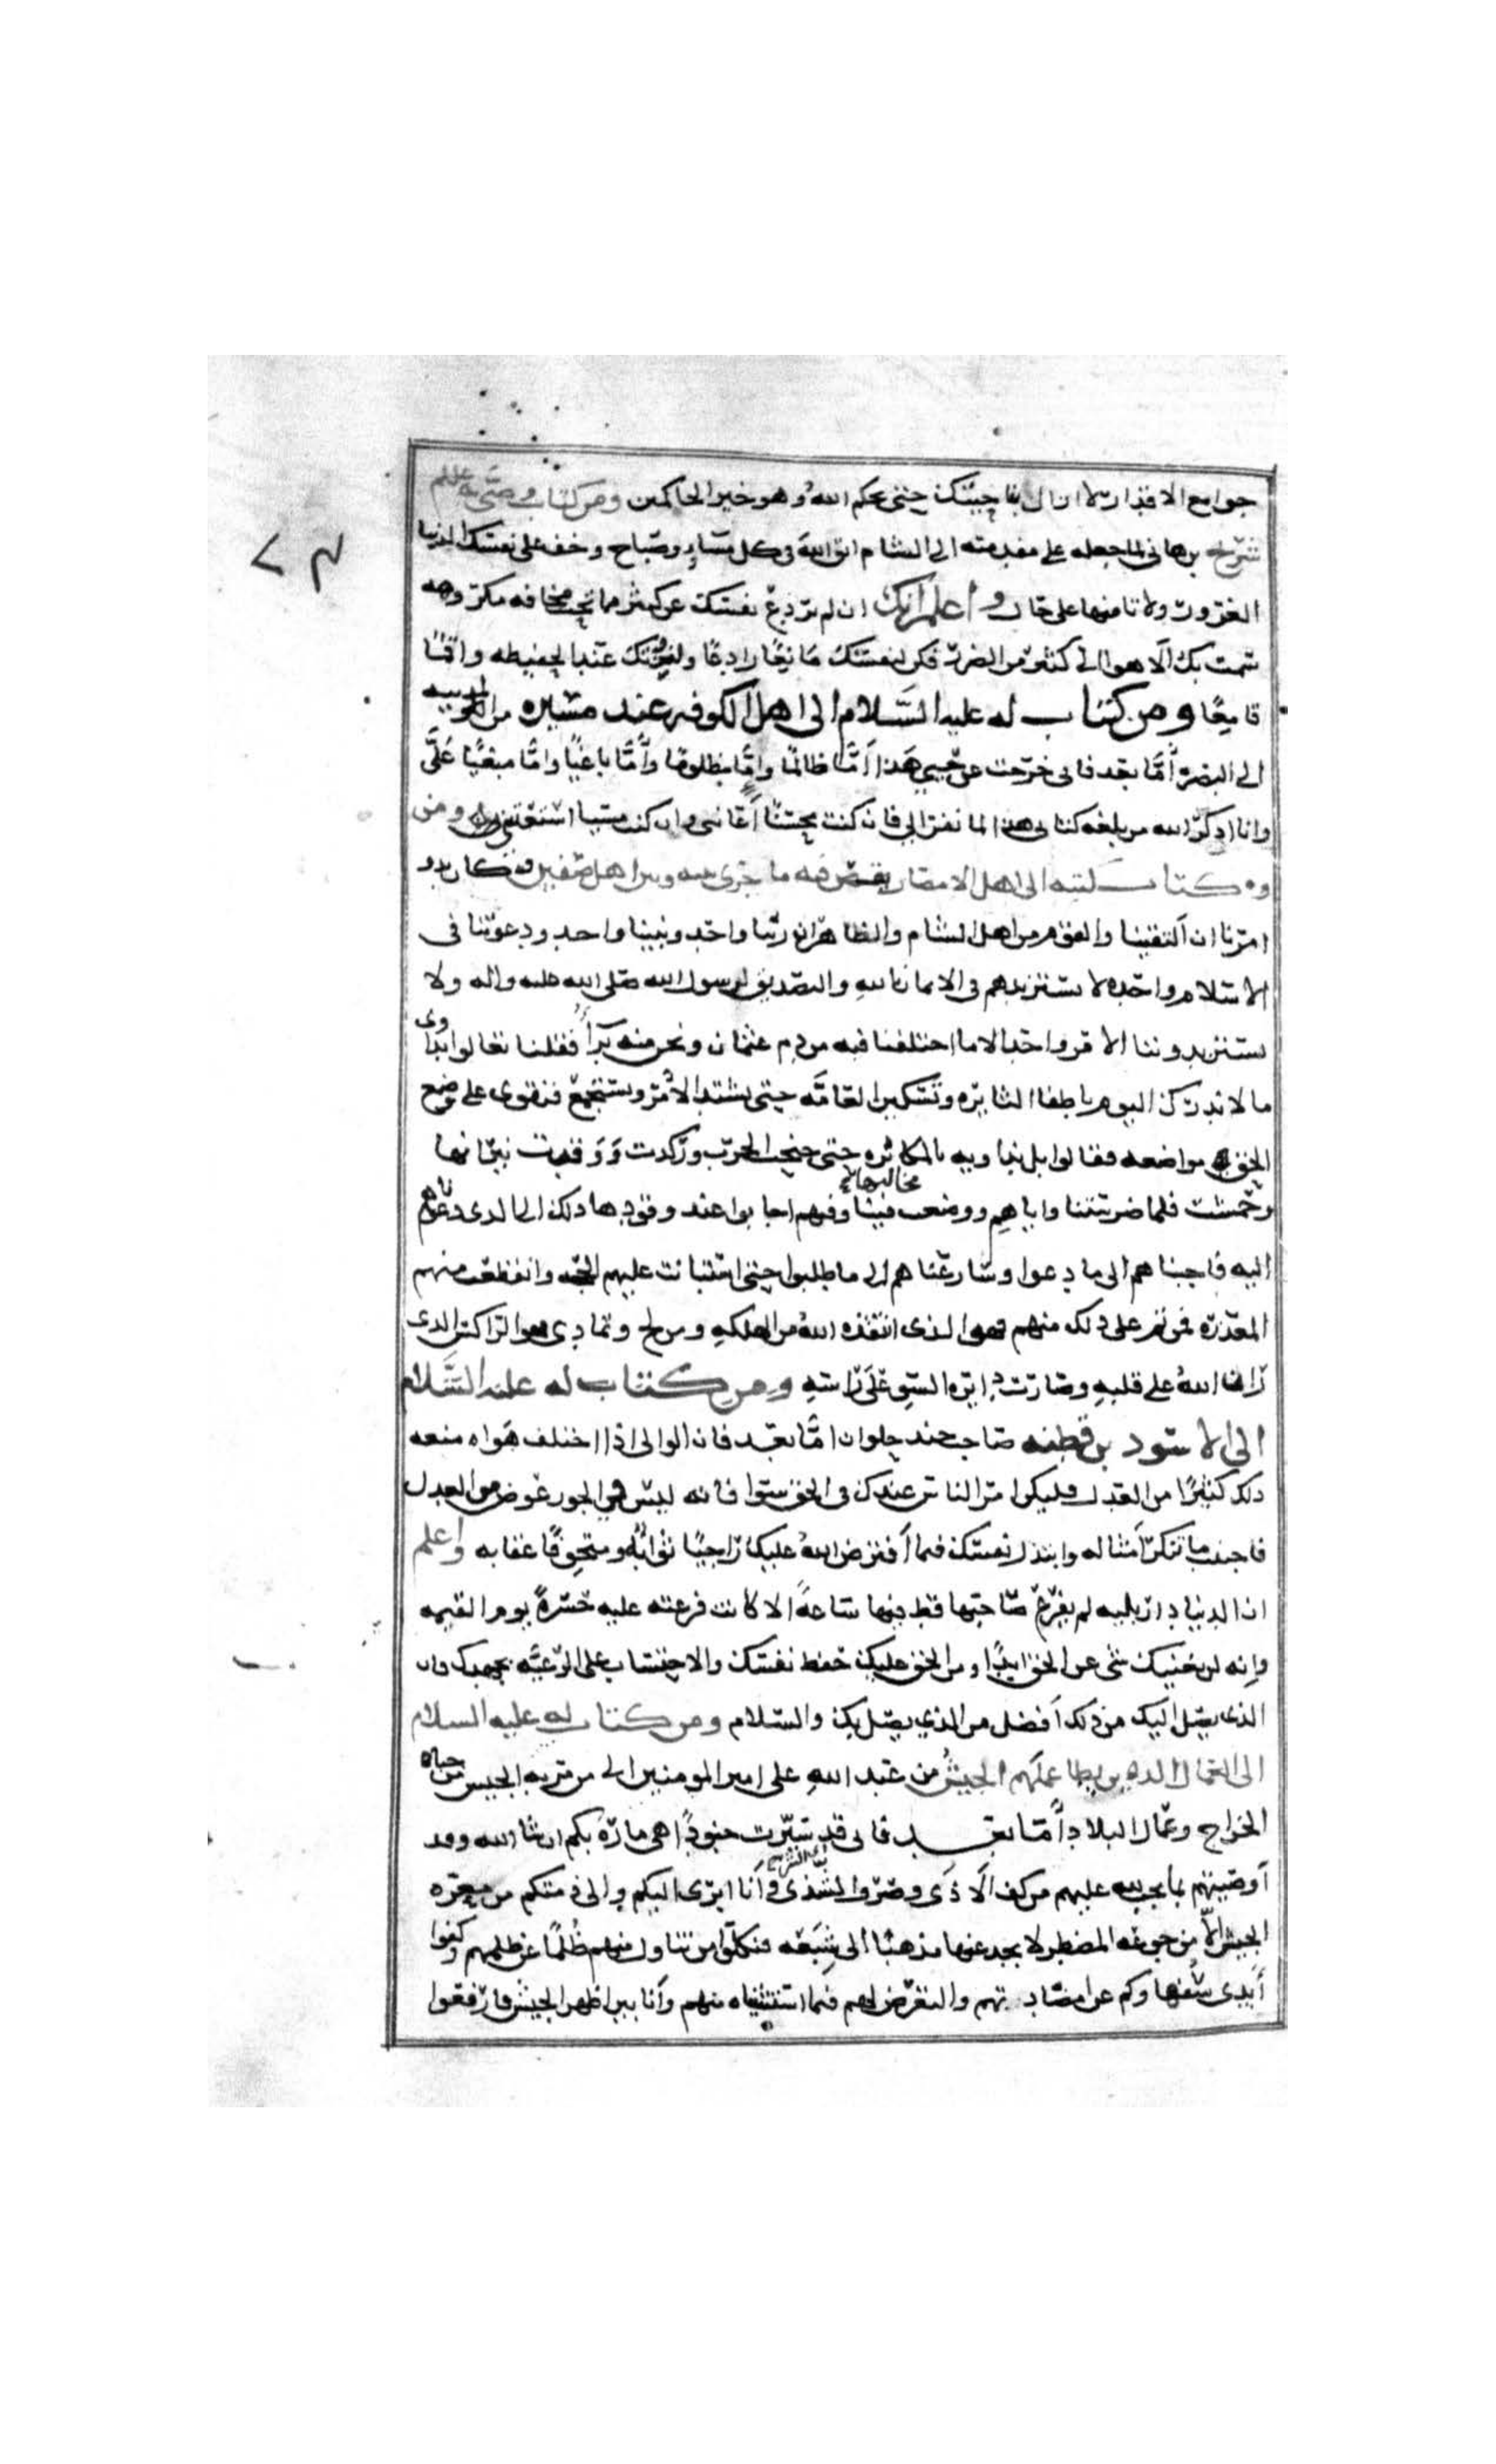 جوامع الاقدار لا ازال بناحيتك حتى يحكم الله وهو خير الحاكمين ومن كتاب وصى به
شريح بن هانى لما جعله على مقدمته الى الشام اتق الله فى كل مساء وصباح وخف على نفسك الدنيا
الغرور ولا تامنها على حال واعلم انك ان لم تردع نفسك عن كثير مما تحب مخافه مكروهه
سمت بك الاهوا الى كثير من الضرر فكن لنفسك مانعا رادعا عند الحفيظه واقما
قامعا ومن كتاب له عليه السلام الى اهل الكوفه عند مسيره من المدينه
الى البصره أما بعد فانى خرجت عن حيي هذا إما ظالما وإما مظلوما وإما باغيا واما مبغيا عليّ
وانا اذكر الله من بلغه كتابى هذا لما نفر الى فان كنت محسنا أعاننى وان كنت مسيا ومن
كتاب كتبه الى اهل الامصار يقص فيه ما جرى بينه وبين اهل صفين وكان بدو
امرنا ان التقينا والقوم من اهل الشام والظاهر ان ربنا واحد ونبينا واحد ودعوتنا فى
الاسلام واحده لا نستزيدهم فى الايمان بالله والتصديق لرسول الله صلى الله عليه واله ولا
يستزيدوننا الامر واحد الا ما اختلفنا فيه من دم عثمان ونحن منه برآ فقلنا تعالوا نداوى
ما لا ندرك اليوم باطفا النايره وتسكين العامه حتى يشتد الامر ويستجمع فنقوى على وضع
الحق مواضعه فقالوا بل نداويه بالمكابره حتى جنحت الحرب وركدت ووقدت نيرانها
وحمشت فلما ضرستنا واياهم ووضعت مخالبها فينا وفيهم اجابوا عند ذلك الى الذى دعوناهم
اليه فاجبناهم الى ما دعوا وسارعناهم الى ما طلبوا حتى استبانت عليهم الحجه وانقطعت منهم
المعذره فمن تم على ذلك منهم فهو الذى انقذه الله من الهلكه ومن لج وتمادى فهو الراكس الذى
ران الله على قلبه وصارت دايره السوء على راسه ومن كتاب له عليه السلام
الى الاسود بن قطبه صاحب جند حلوان اما بعد فان الوالى اذا اختلف هواه منعه
ذلك كثيرا من العدل فليكن امر الناس عندك فى الحق سوا فانه ليس فى الجور عوض من العدل
فاجتنب ما تنكر أمثاله وابتذل نفسك فيما أفترض الله عليك راجيا ثوابه ومتخوفا عقابه واعلم
ان الدنيا دار بليه لم يفرغ صاحبها قط فيها ساعة الا كانت فرغته عليه حسرة يوم القيمه
وانه لن يغنيك شى عن الحق ابدا ومن الحق عليك حفظ نفسك والاحتساب على الرعيه بجهدك فان
الذى يصل اليك من ذلك أفضل من الذى يصل بك والسلام ومن كتاب له عليه السلام
الى العمال الذين يطا عملهم الجيش من عبد الله على امير المومنين الى من مر به الجيس من جباه
الخراج وعمال البلاد أما بعد فانى قد سيرت جنودا هى ماره بكم ان شا الله وقد
أوصيتهم بما يجب لله عليهم من كف الاذى وصرف الشذى وأنا ابرى اليكم والى ذمتكم من معره
الجيش الا من جوعه المضطر لا يجد عنها مذهبا الى شبعه فنكلوا من تناول منهم ظلما عن ظلمهم وكفوا
أيدى سفهاوكم عن مضادتهم والتعرض لهم فيما استثنيناه منهم وأنا بين اظهر الجيش فارفعوا